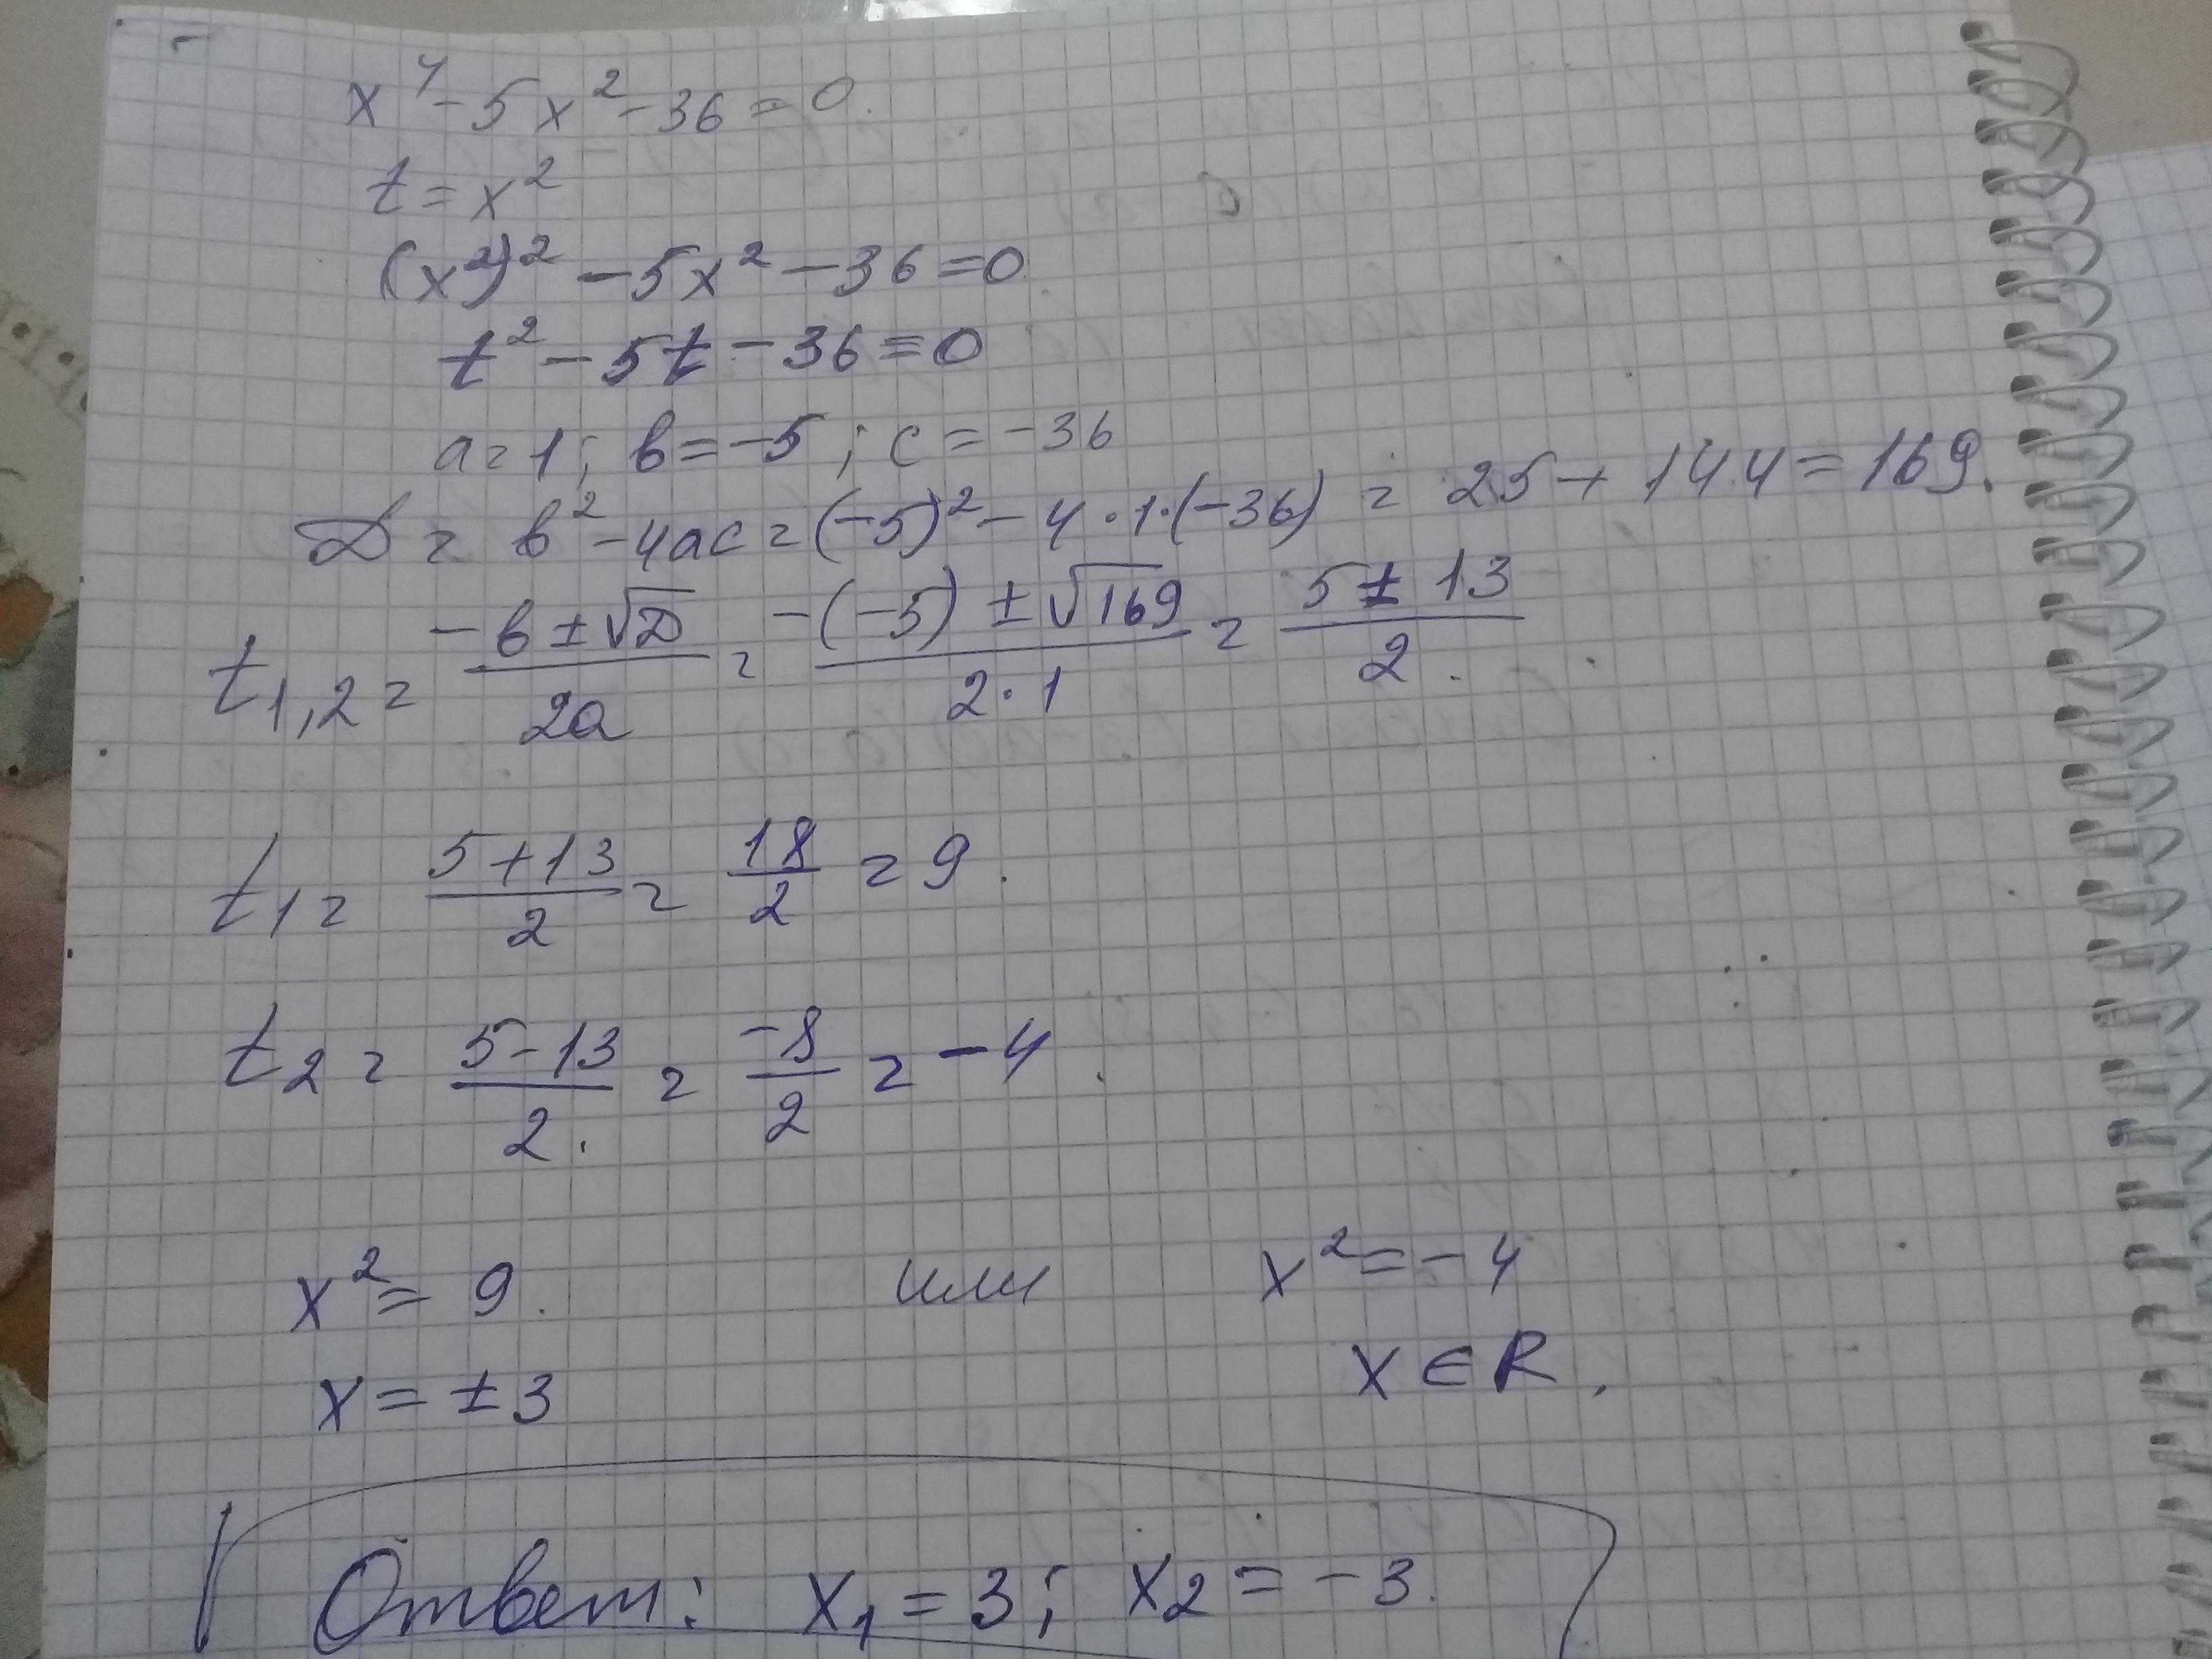 x⁴ - 5x² - 36 = 0.
t = x²
(x²)² - 5x² - 36 = 0
t² - 5t - 36 = 0
a = 1; b = -5; c = -36
D = b² - 4ac = (-5)² - 4·1·(-36) = 25 + 144 = 169.
t₁,₂ = (-b ± √D)/2a = (-(-5) ± √169)/(2·1) = (5 ± 13)/2.
t₁ = (5+13)/2 = 18/2 = 9.
t₂ = (5-13)/2. = -8/2 = -4.
x² = 9. или x² = -4
x = ±3 x ∈ R.
Ответ: x₁ = 3; x₂ = -3.